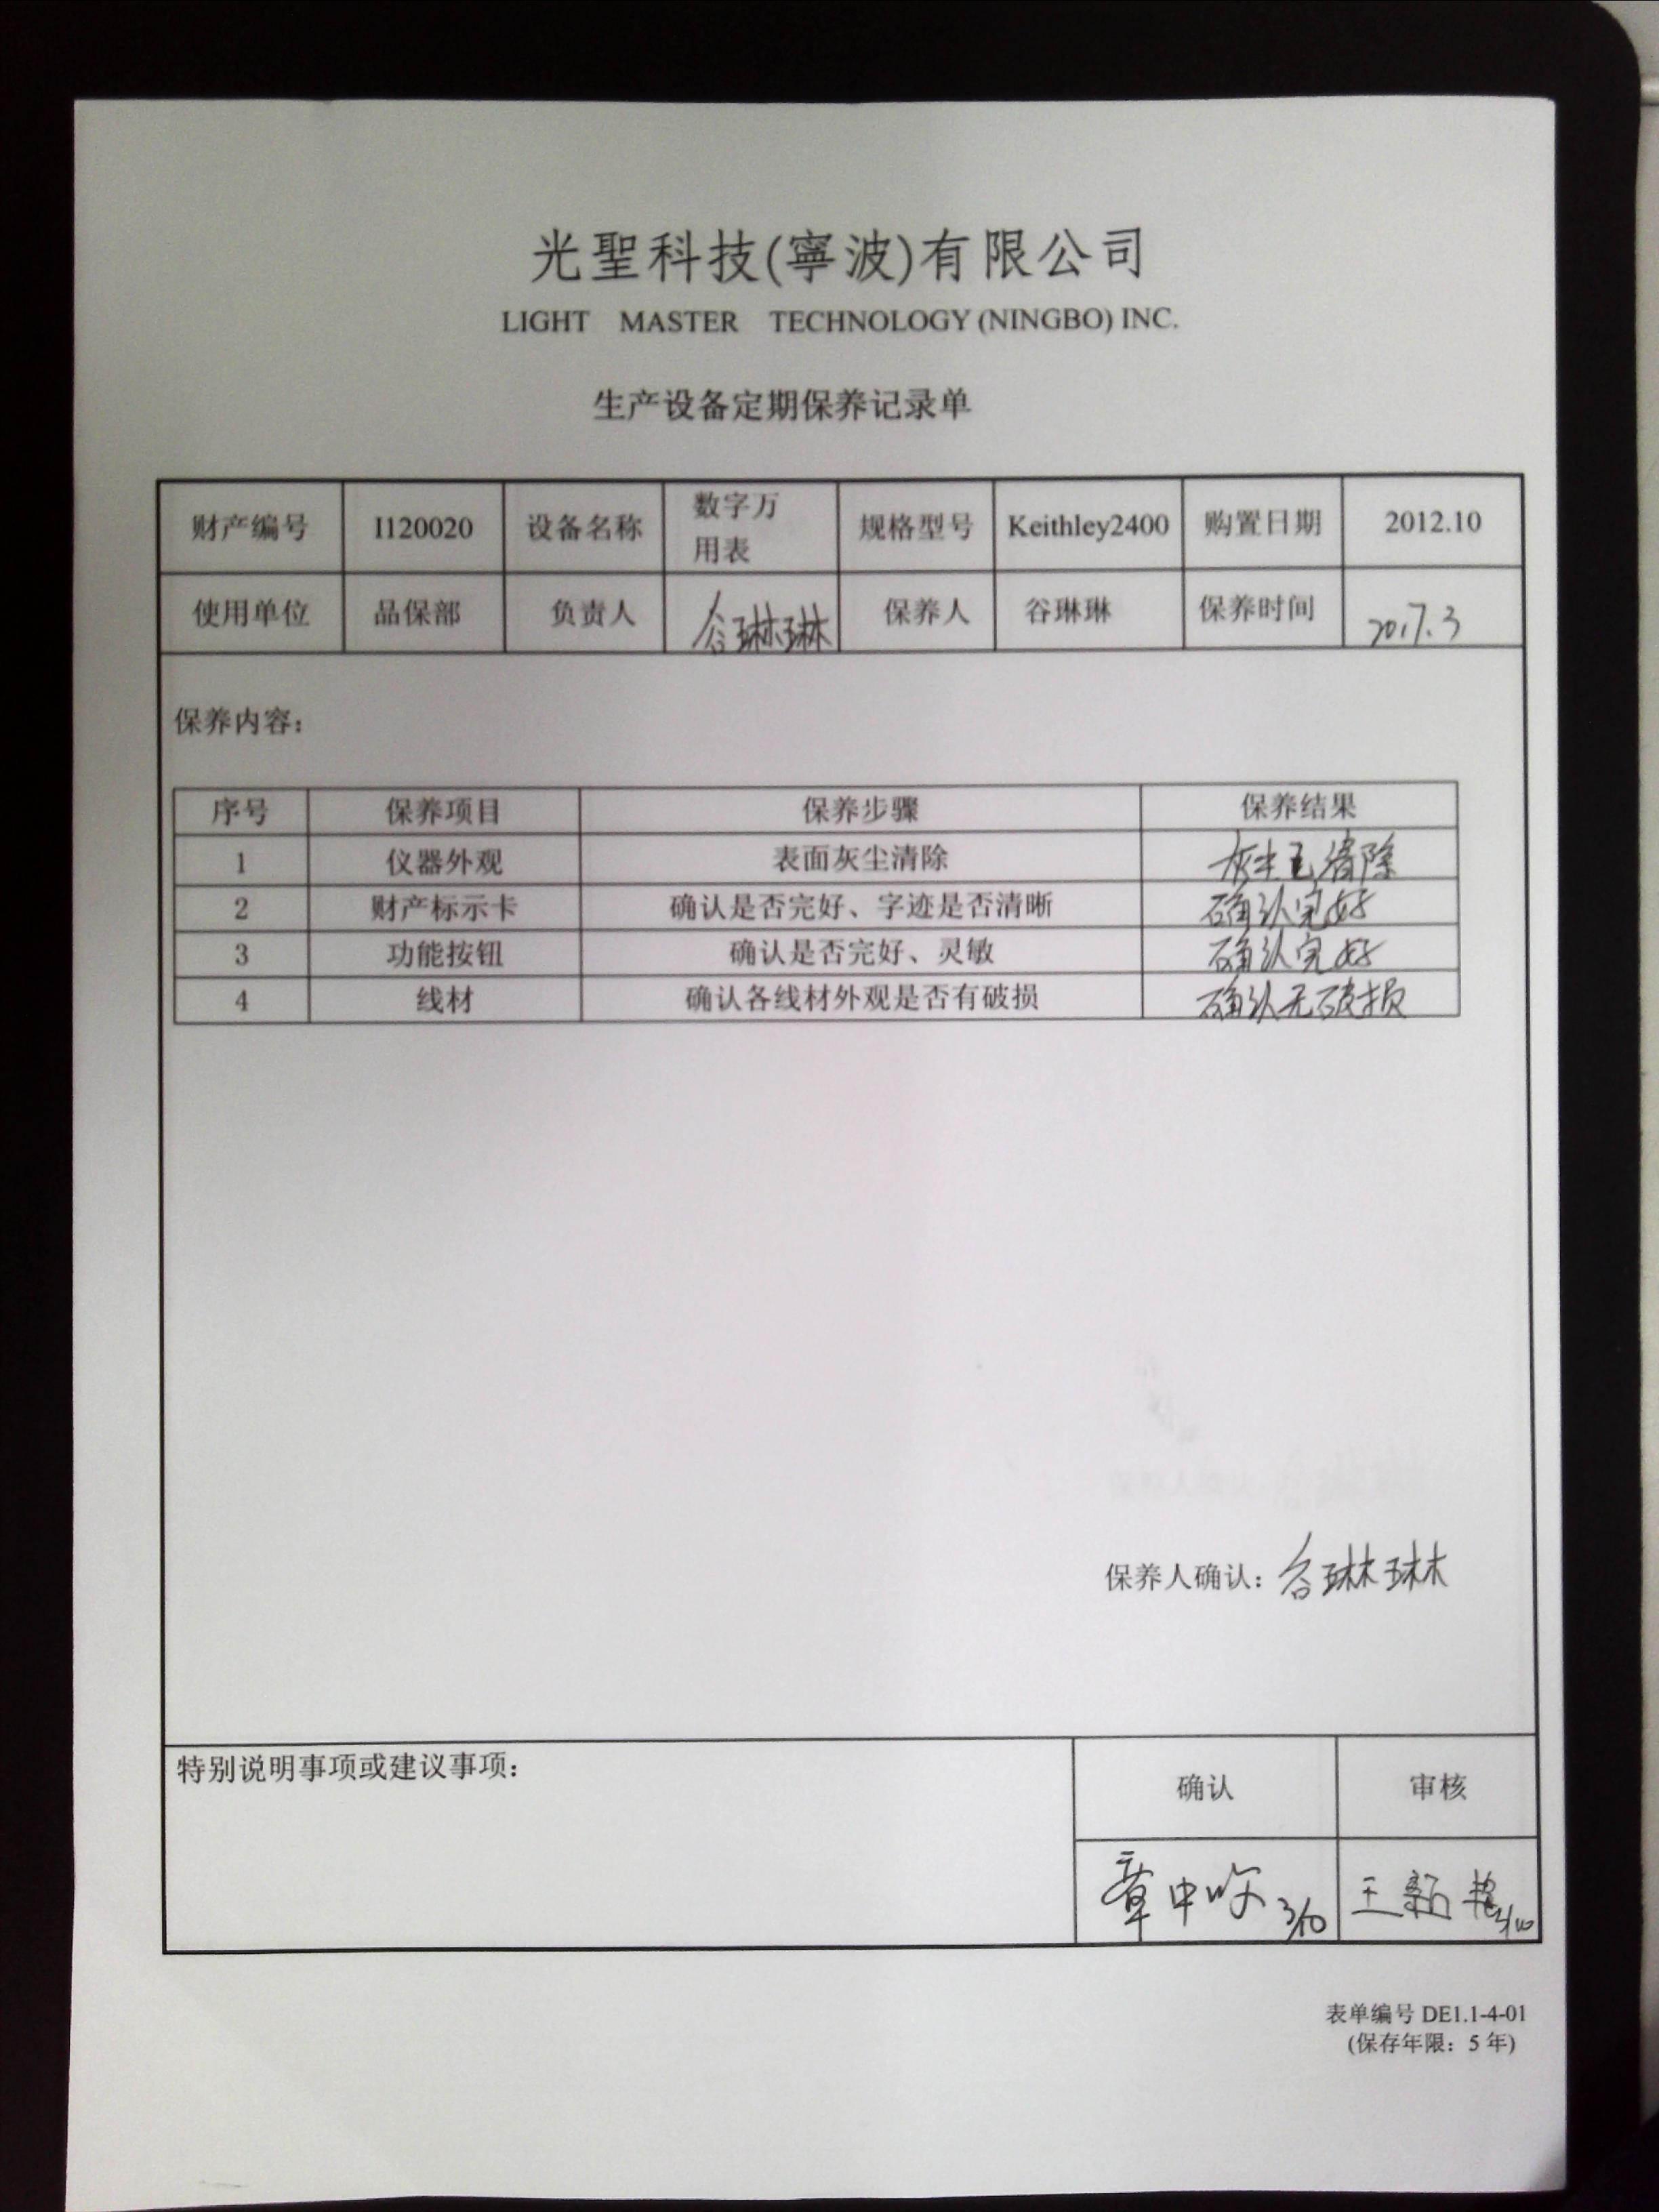 光聖科技(寧波)有限公司
LIGHT MASTER TECHNOLOGY (NINGBO) INC.
生产设备定期保养记录单
财产编号 I120020 设备名称 数字万用表 规格型号 Keithley2400 购置日期 2012.10
使用单位 品保部 负责人 谷琳琳 保养人 谷琳琳 保养时间 2017.3
保养内容：
序号 保养项目 保养步骤 保养结果
1 仪器外观 表面灰尘清除 灰尘已清除
2 财产标示卡 确认是否完好、字迹是否清晰 确认完好
3 功能按钮 确认是否完好、灵敏 确认完好
4 线材 确认各线材外观是否有破损 确认无破损
保养人确认：谷琳琳
特别说明事项或建议事项： 确认 审核
章中 3/10 王新艳 3/10
表单编号 DE1.1-4-01
(保存年限：5 年)